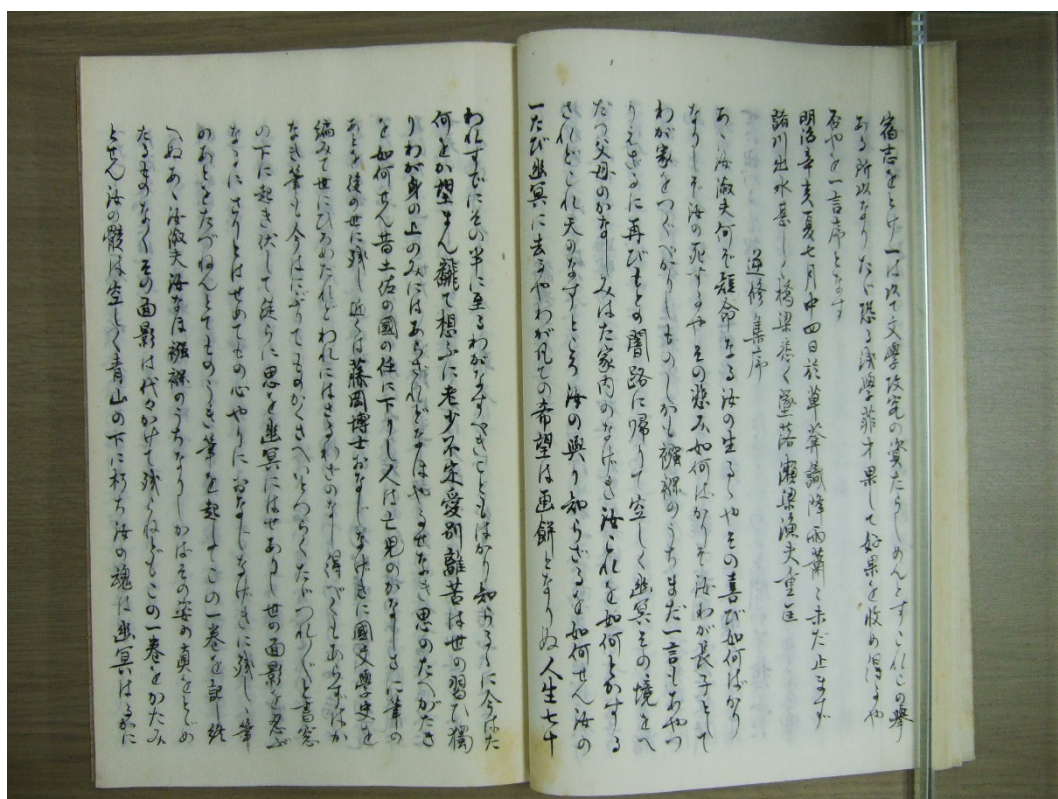 宿志をとげ一は以て文學攻究の資たらしめんとすこれこの擧
ある所以なりたゞ恐る浅學菲才果して好果を收め得るや
否やを一言序となす
明治辛亥夏七月中四日於草葊識降雨蕭々未だ止まず
諸川出水甚し橋梁悉く墜落瀬梁漁夫重匡
逆修集序
あゝ汝淑夫何ぞ短命なる汝の生るゝやその喜び如何ばかり
なりしぞ汝の死するやその悲み如何ばかりぞ汝わが長子として
わが家をつぐべかりしものしかも襁褓のうちまだ一言もあやつ
りえざるに再びもとの闇路に帰りて空しく幽冥その境をへ
だつ父母のかなしみはた家内のなげき汝これを如何とかする
されどこれ天のなすところ汝の與り知らざるを如何せん汝の
一たび幽冥に去るやわが凡ての希望は画餅となりぬ人生七十
われすでにその半に至るわがなすべきこともはかり知らるゝに今はた
何をか望まん飜て想ふに老少不定愛別離苦は世の習ひ獨
りわが身の上のみにはあらざれどなほやるせなき思のたへがたき
を如何せん昔土佐の國の任に下りし人は亡児のかなしさに筆の
あとを後の世に残し近くは藤岡博士おなじなげきに國文學史を
編みて世にひろめたれどわれにはさるわざのなし得べくもあらずはか
なき筆も今はにぶりてものかくさへいとつらくたゞつれ〲と書窓
の下に起き伏して徒らに思を幽冥にはせありし世の面影を忍ぶ
なるにさりとはせめてもの心やりにおなじなげきに残しゝ筆
のあとをたづねんとてものうき筆を起してこの一巻を記し終
へぬあゝ汝淑夫汝なほ襁褓のうちなりしかばその姿の真をとゞめ
たるものなくその面影は代々かけて残らねどもこの一巻をかたみ
とせん汝の骸は空しく青山の下に朽ち汝の魂は幽冥はるかに